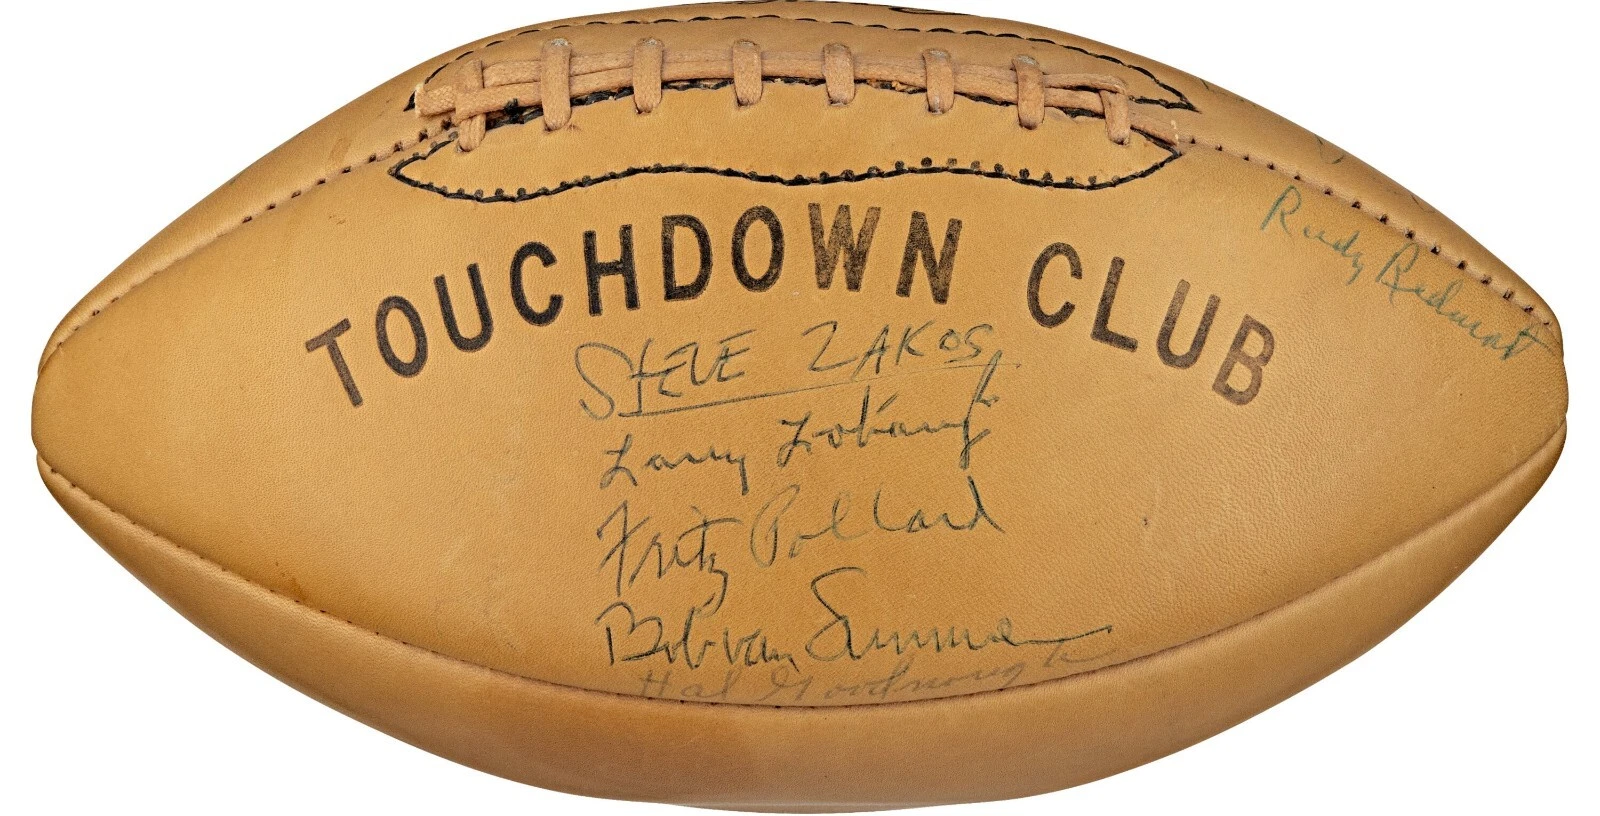 TOUCHDOWN CLUB
Rudy Redmont
STEVE ZAKOS
Larry Lobaugh
Fritz Pollard
Bob van
Hal Goodnough